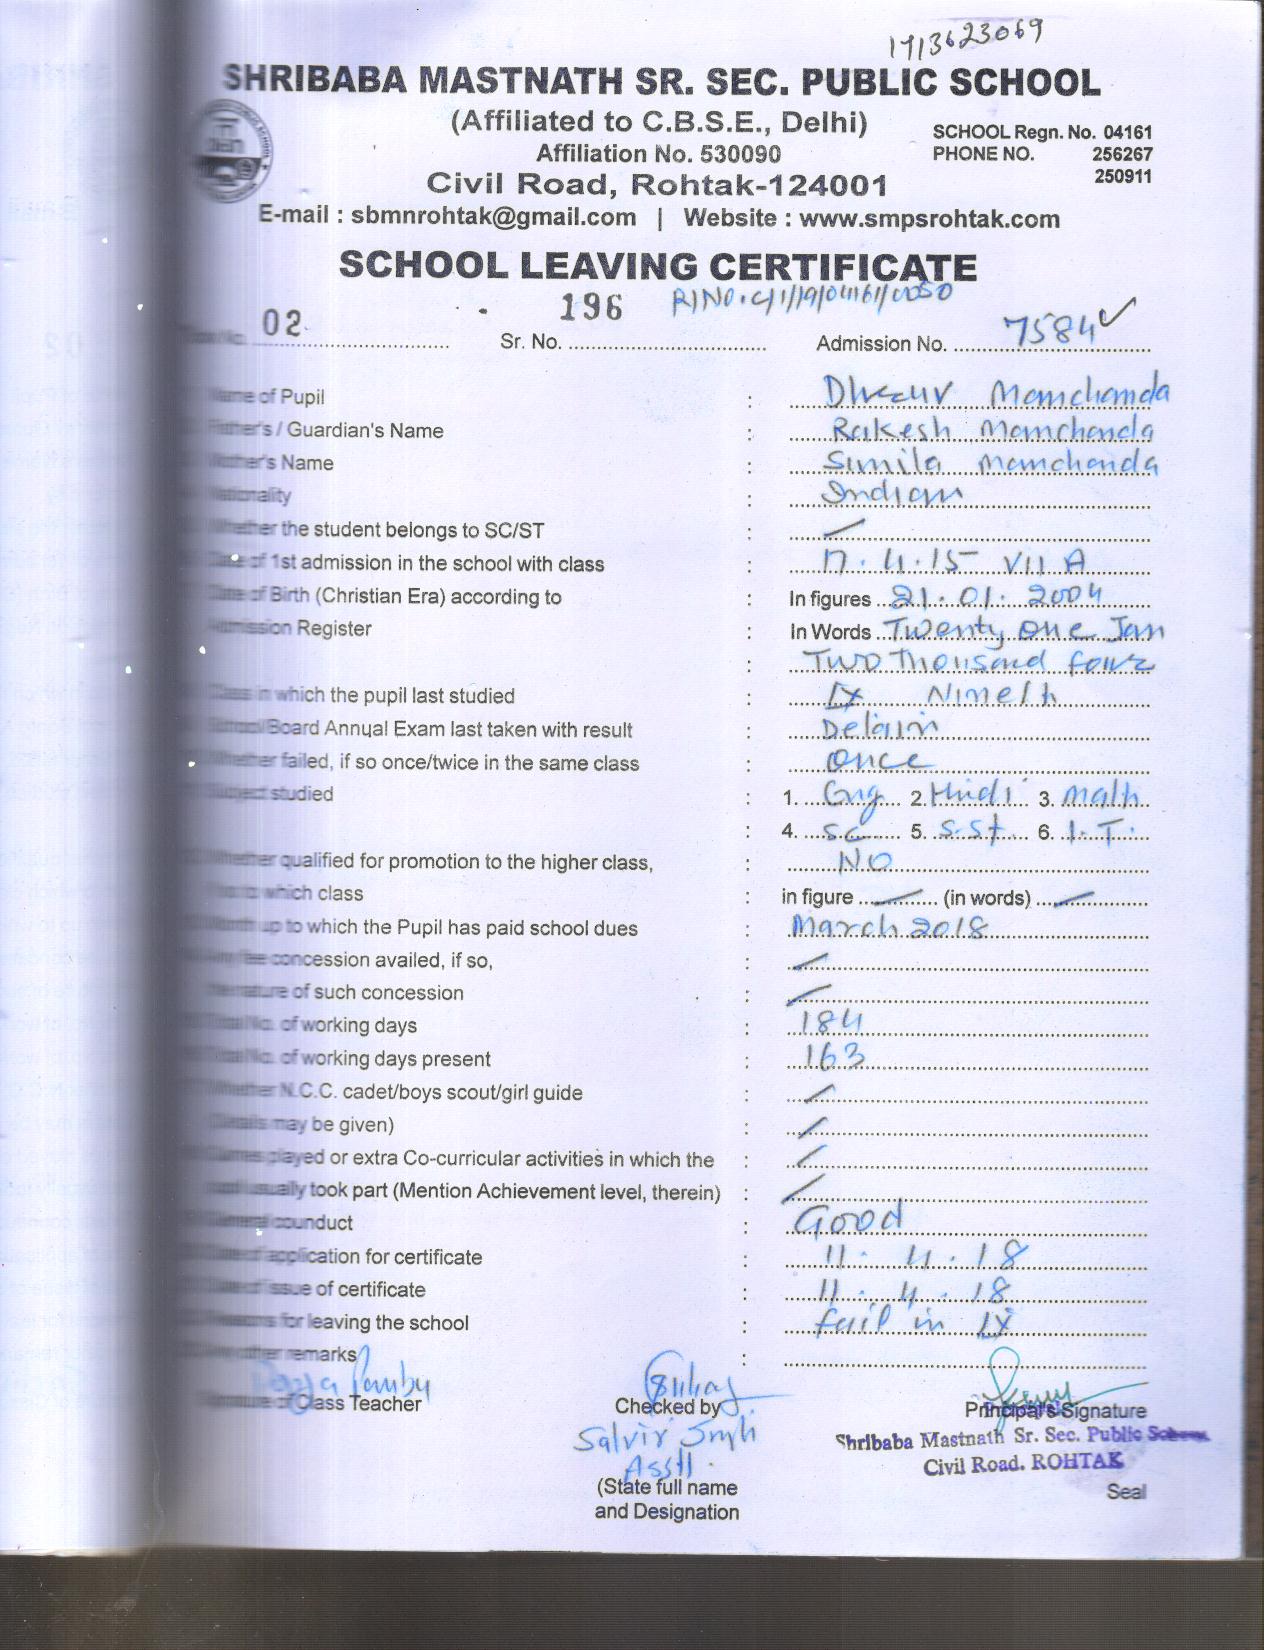 1713623069
SHRIBABA MASTNATH SR. SEC. PUBLIC SCHOOL
(Affiliated to C.B.S.E., Delhi)
SCHOOL Regn. No. 04161
Affiliation No. 530090
PHONE NO. 256267
250911
Civil Road, Rohtak-124001
E-mail : sbmnrohtak@gmail.com | Website : www.smpsrohtak.com
SCHOOL LEAVING CERTIFICATE
02 Sr. No. 196 Admission No. 7584
Name of Pupil : Dhruv Manchanda
Father's / Guardian's Name : Rakesh Manchanda
Mother's Name : Sunila Manchanda
Nationality : Indian
Whether the student belongs to SC/ST :
Date of 1st admission in the school with class : 17.4.15 VII A
Date of Birth (Christian Era) according to : In figures 21.01.2004
Admission Register : In Words Twenty one Jan
: Two thousand four
Class in which the pupil last studied : IX Nineth
School/Board Annual Exam last taken with result : Detain
Whether failed, if so once/twice in the same class : Once
Subject studied : 1. Eng 2. Hindi 3. Math
: 4. Sc 5. S.St 6. I.T.
Whether qualified for promotion to the higher class, : NO
which class : in figure (in words)
Month up to which the Pupil has paid school dues : March 2018
Any fee concession availed, if so, :
the nature of such concession :
Total No. of working days : 184
Total No. of working days present : 163
Whether N.C.C. cadet/boys scout/girl guide :
(Details may be given) :
Games played or extra Co-curricular activities in which the :
usually took part (Mention Achievement level, therein) :
General counduct : Good
Date of application for certificate : 11.4.18
Date of issue of certificate : 11.4.18
Reasons for leaving the school : fail in IX
Any other remarks :
Signature of Class Teacher Checked by Principal's Signature
Shribaba Mastnath Sr. Sec. Public School
Civil Road. ROHTAK
(State full name Seal
and Designation